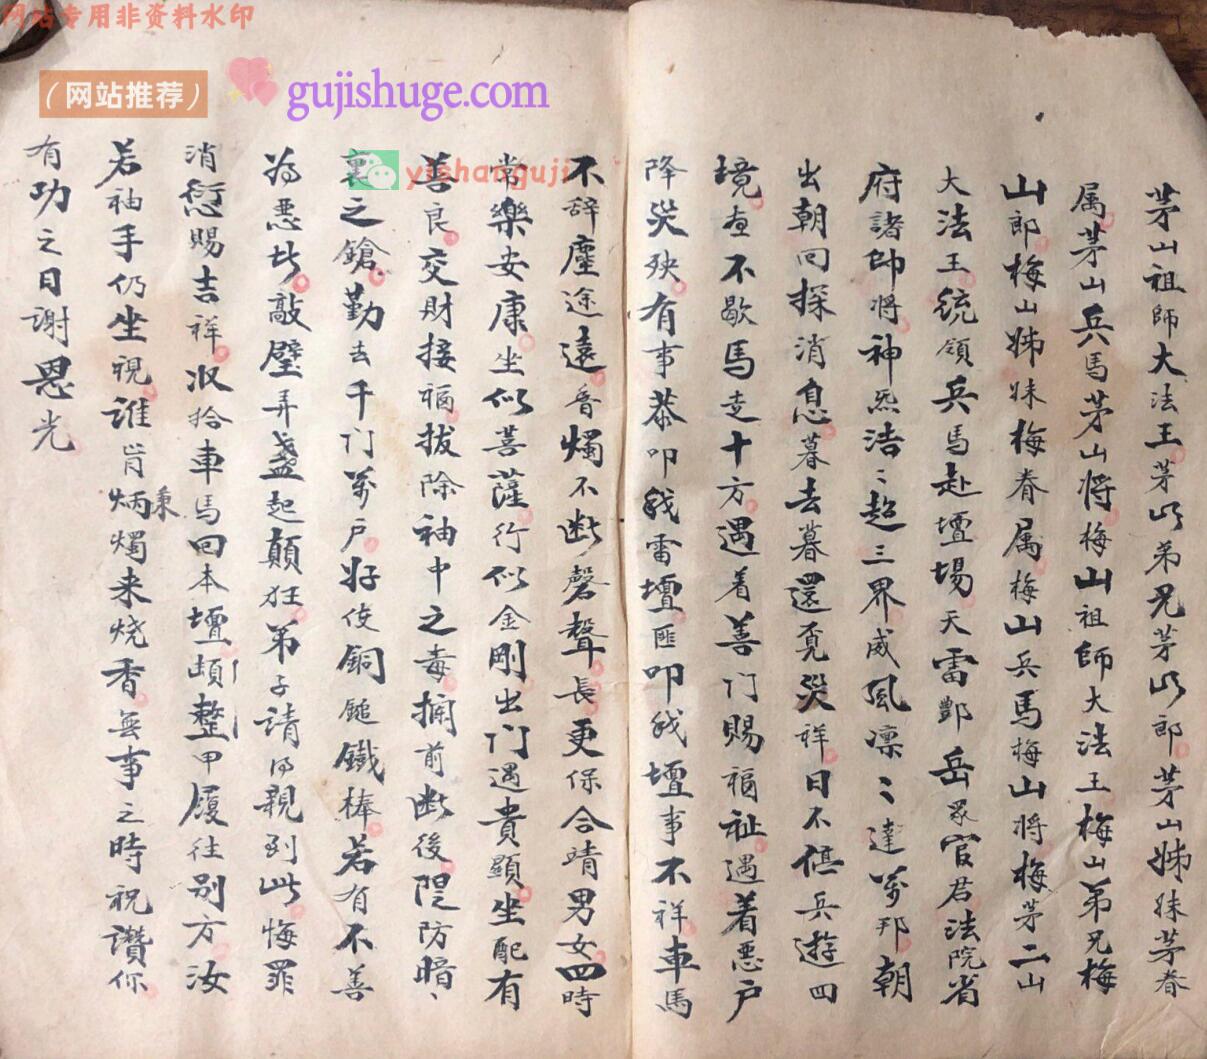 网站专用非资料水印
（网站推荐）
gujishuge.com
yishanguji
茅山祖師大法王茅山弟兄茅山郎茅山姊妹茅眷
属茅山兵馬茅山將梅山祖師大法王梅山弟兄梅
山郎梅山姊妹梅眷属梅山兵馬梅山将梅茅二山
大法王統領兵馬赴壇場天雷酆岳眾官君法院省
府諸帥將神炁浩〻超三界威風凛〻達萬邦朝
出朝回探消息暮去暮還覓災祥日不停兵遊四
境夜不歇馬走十方遇着善门賜福祉遇着悪户
降災殃有事恭叩我雷壇匪叩我壇事不祥車馬
不辞塵途遠香燭不断磬聲長更保合靖男女四時
常樂安康坐似菩薩行似金剛出门遇貴顯坐配有
善良交財接福拔除袖中之毒攔前断後隄防暗〻
裏之鎗勤去千门萬户好使銅鎚鐵棒若有不善
為悪皆敲壁弄盏起顛狂弟子請何親到此悔罪
消愆賜吉祥収拾車馬回本壇頓整甲履往别方汝
若袖手仍坐視誰肯炳秉燭来烧香無事之時祝讚你
有功之日谢恩光